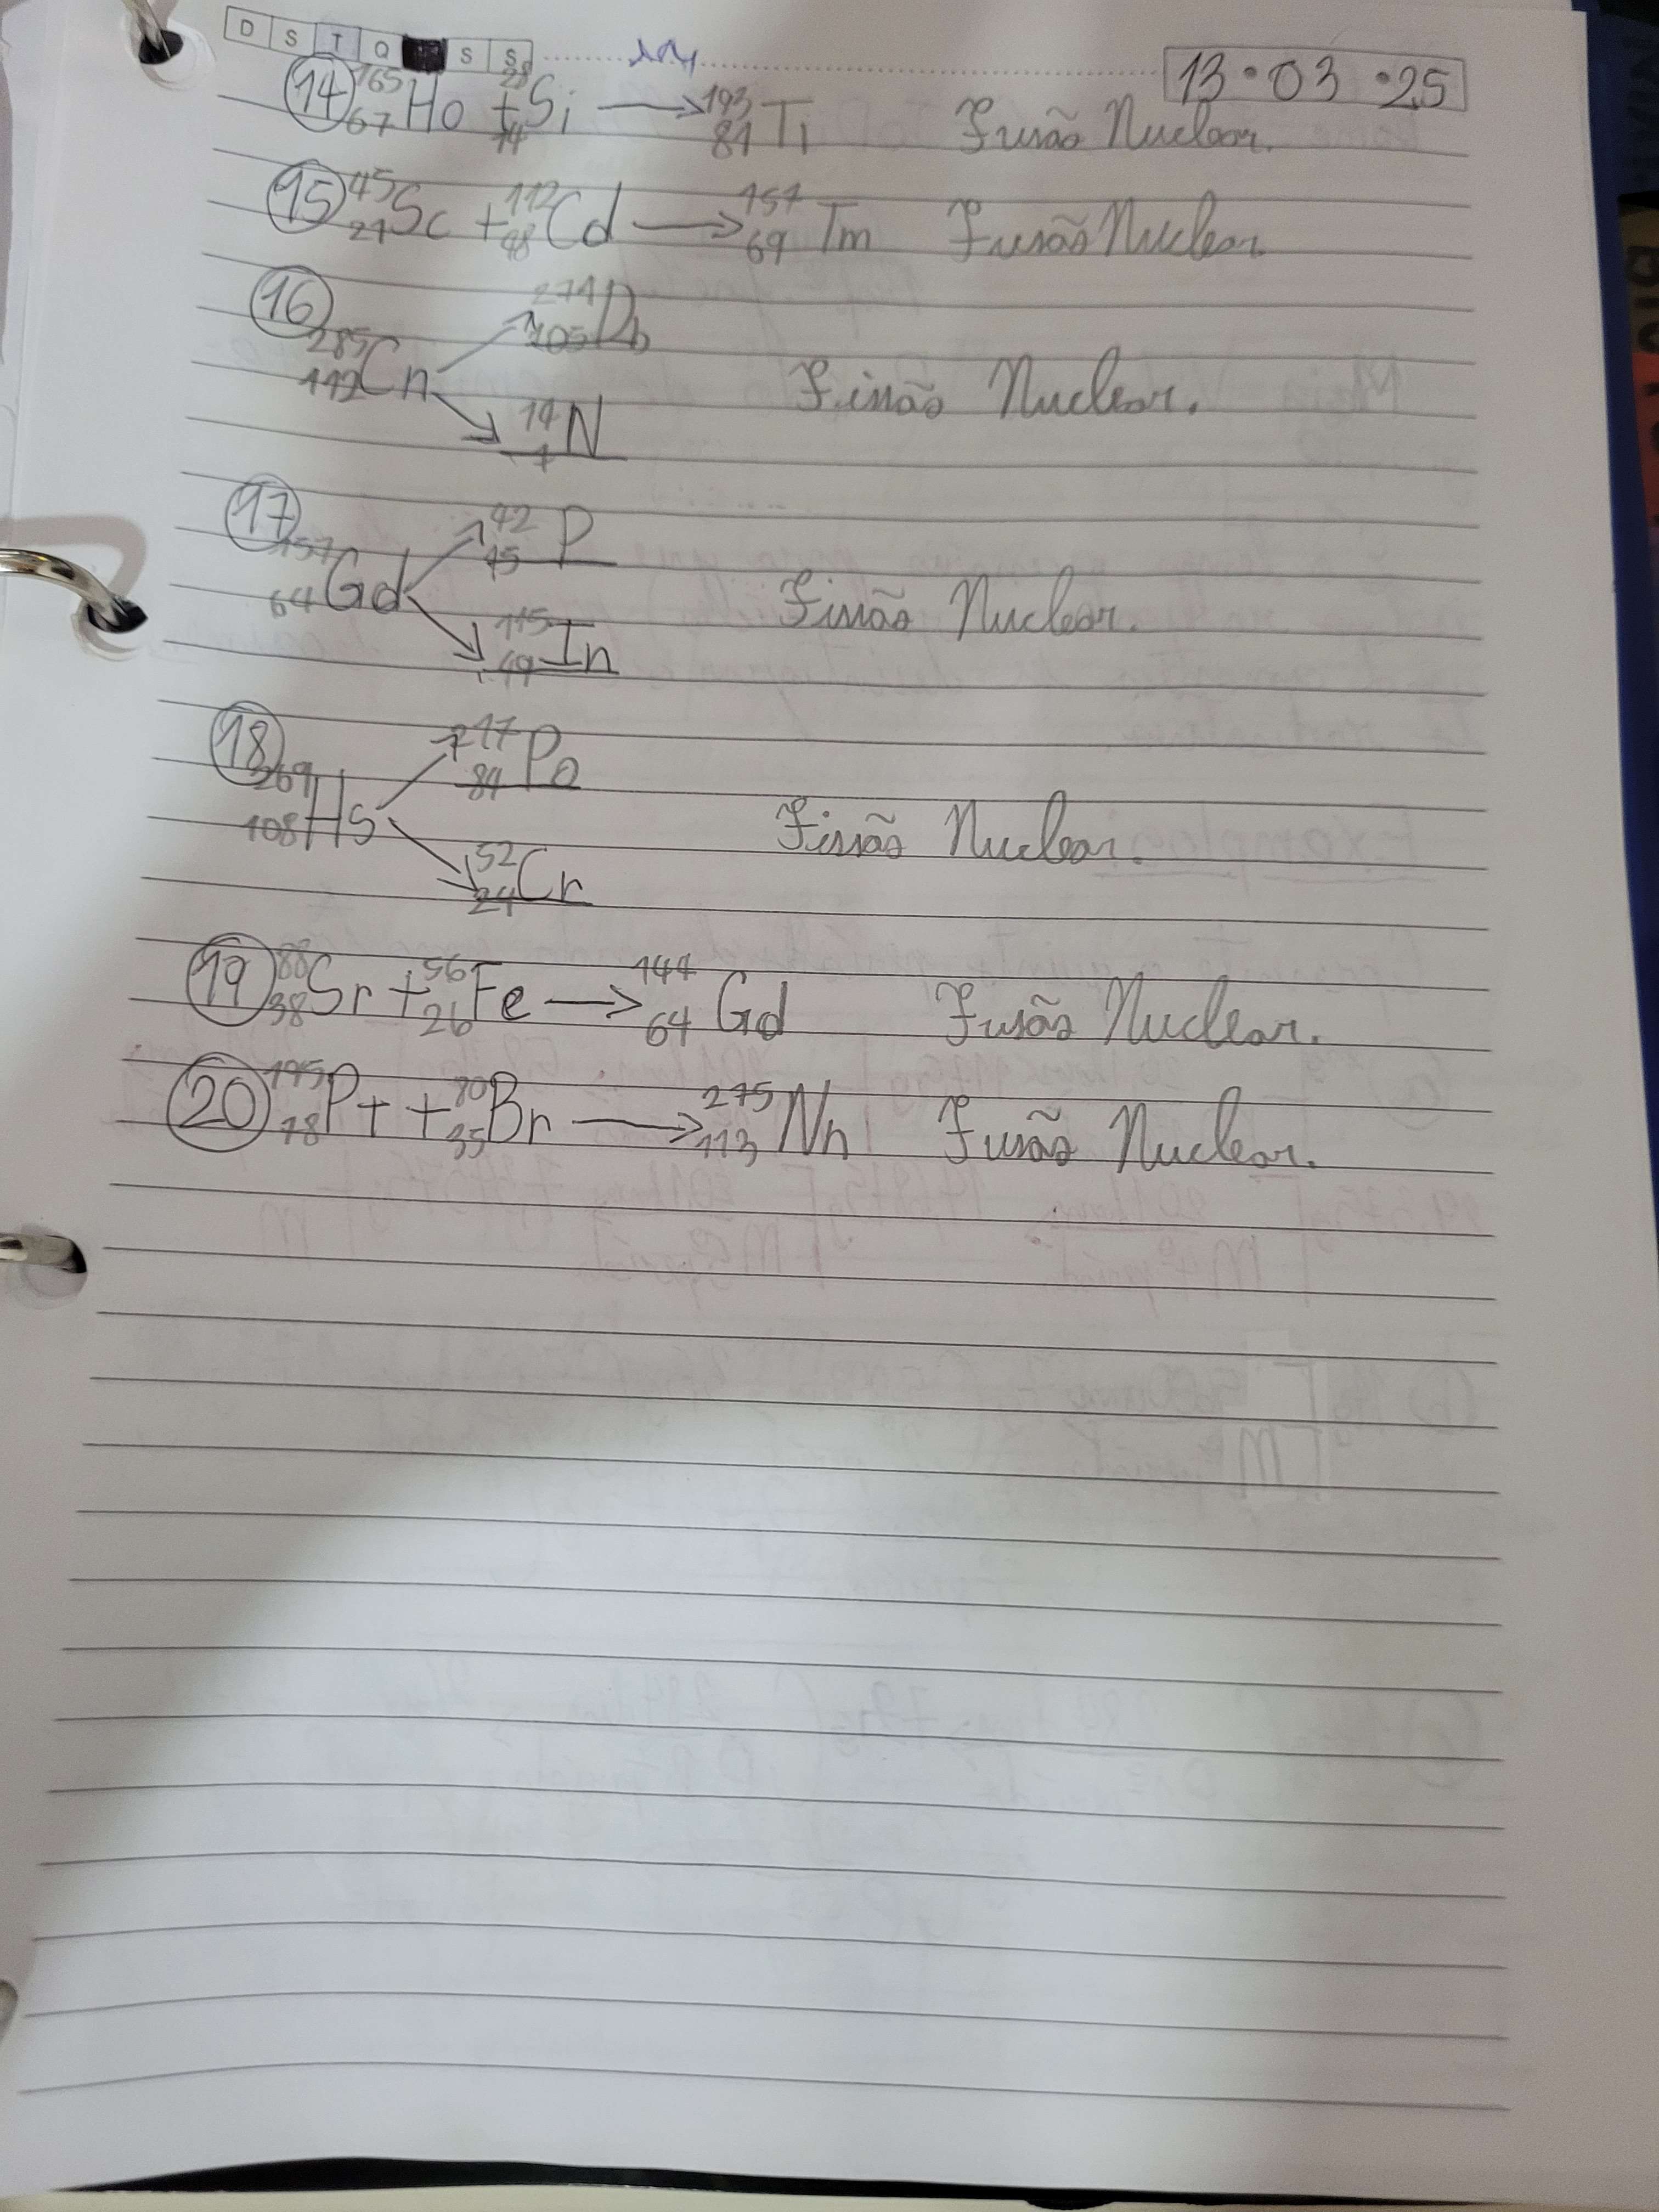 D S T Q S S 13•03•25
14 ¹⁶⁵₆₇Ho + ²⁸₁₄Si → ¹⁹³₈₁Ti Fusão Nuclear.
15 ⁴⁵₂₁Sc + ¹¹²₄₈Cd → ¹⁵⁷₆₉Tm Fusão Nuclear
16 ²⁸⁵₁₁₂Cn ↗ ²⁷¹₁₀₅Db
↘ ¹⁴₇N Fissão Nuclear.
17 ¹⁵⁷₆₄Gd ↗ ⁴²₁₅P
↘ ¹¹⁵₄₉In Fissão Nuclear.
18 ²⁶⁹₁₀₈Hs ↗ ²¹⁷₈₄Po
↘ ⁵²₂₄Cr Fissão Nuclear.
19 ⁸⁸₃₈Sr + ⁵⁶₂₆Fe → ¹⁴⁴₆₄Gd Fusão Nuclear.
20 ¹⁹⁵₇₈Pt + ⁸⁰₃₅Br → ²⁷⁵₁₁₃Nh Fusão Nuclear.